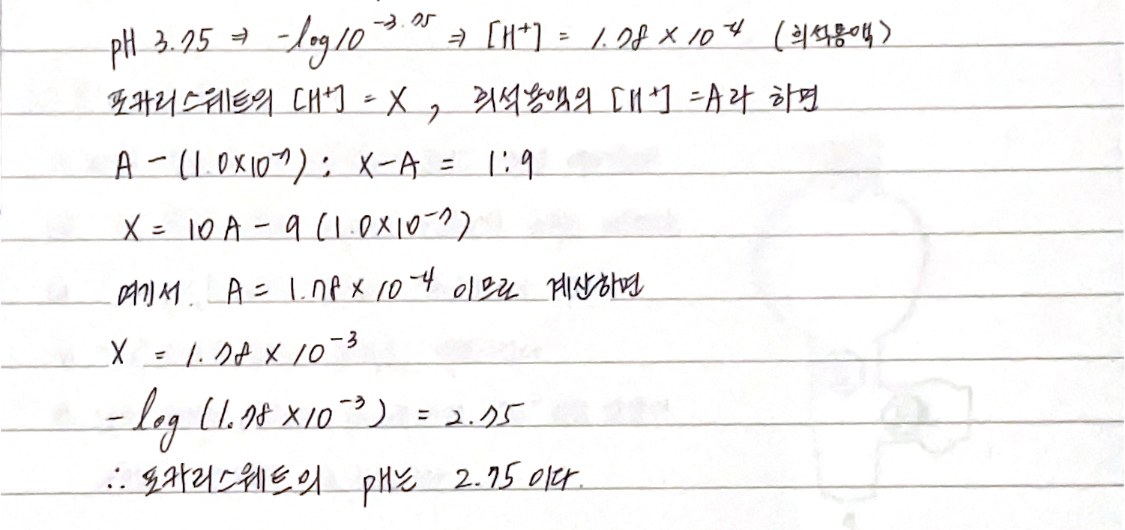 pH 3.75 ⇒ -log10^-3.75 ⇒ [H+] = 1.78 × 10^-4 (희석용액)
포카리스웨트의 [H+] = X, 희석용액의 [H+] = A라 하면
A - (1.0×10^-7) : X-A = 1:9
X = 10A - 9 (1.0×10^-7)
여기서. A = 1.78 × 10^-4 이므로 계산하면
X = 1.78 × 10^-3
-log (1.78 ×10^-3) = 2.75
∴ 포카리스웨트의 pH는 2.75 이다.